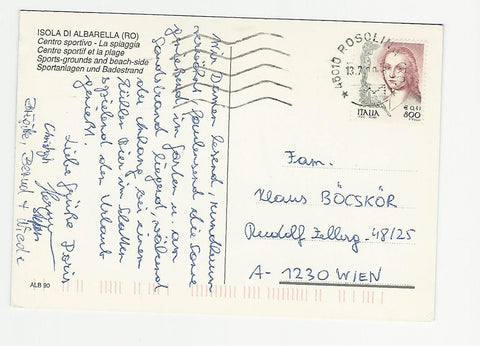 ISOLA DI ALBARELLA (RO)
Centro sportivo - La spiaggia
Centre sportif et la plage
Sports-grounds and beach-side
Sportanlagen und Badestrand
Wir Damen lesend,
die Sonne
genießend, im Garten u. am
Sandstrand liegend, während
der Anhang bei einem
kühlen Bier im Schatten
spielend den Urlaub
genießt.
Liebe Grüße Doris
Christoph
Brigitte, Bernd +
ALB 90
45010 ROSOLINA
ITALIA
€ 0,41
800
Fam.
Klaus BÖCSKÖR
Rudolf Zellerg. 48/25
A- 1230 WIEN